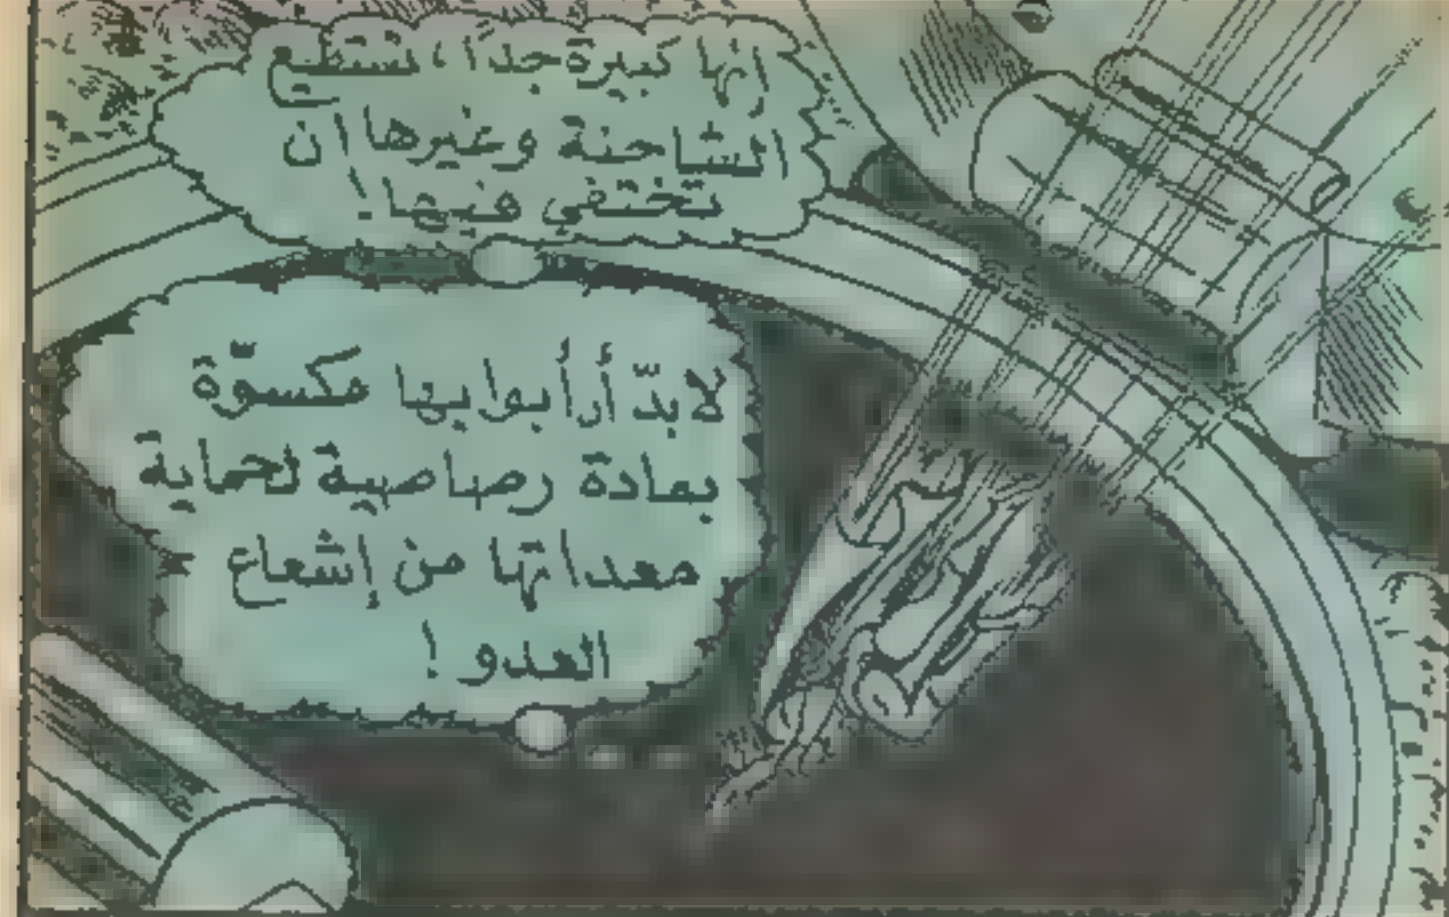 إنها كبيرة جدًا، تستطيع
الشاحنة وغيرها ان
تختفي فيها!
لا بدّ أن أبوابها مكسوّة
بمادة رصاصية لحماية
معداتها من إشعاع
العدو!